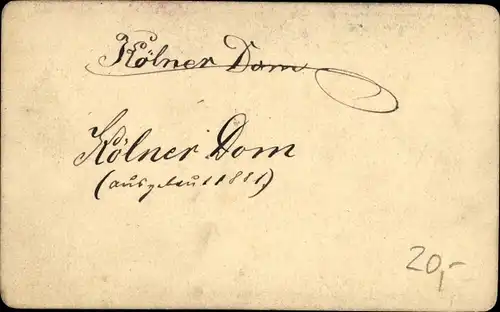 Kölner Dom
Kölner Dom
(ausgebaut 1881)
20,-